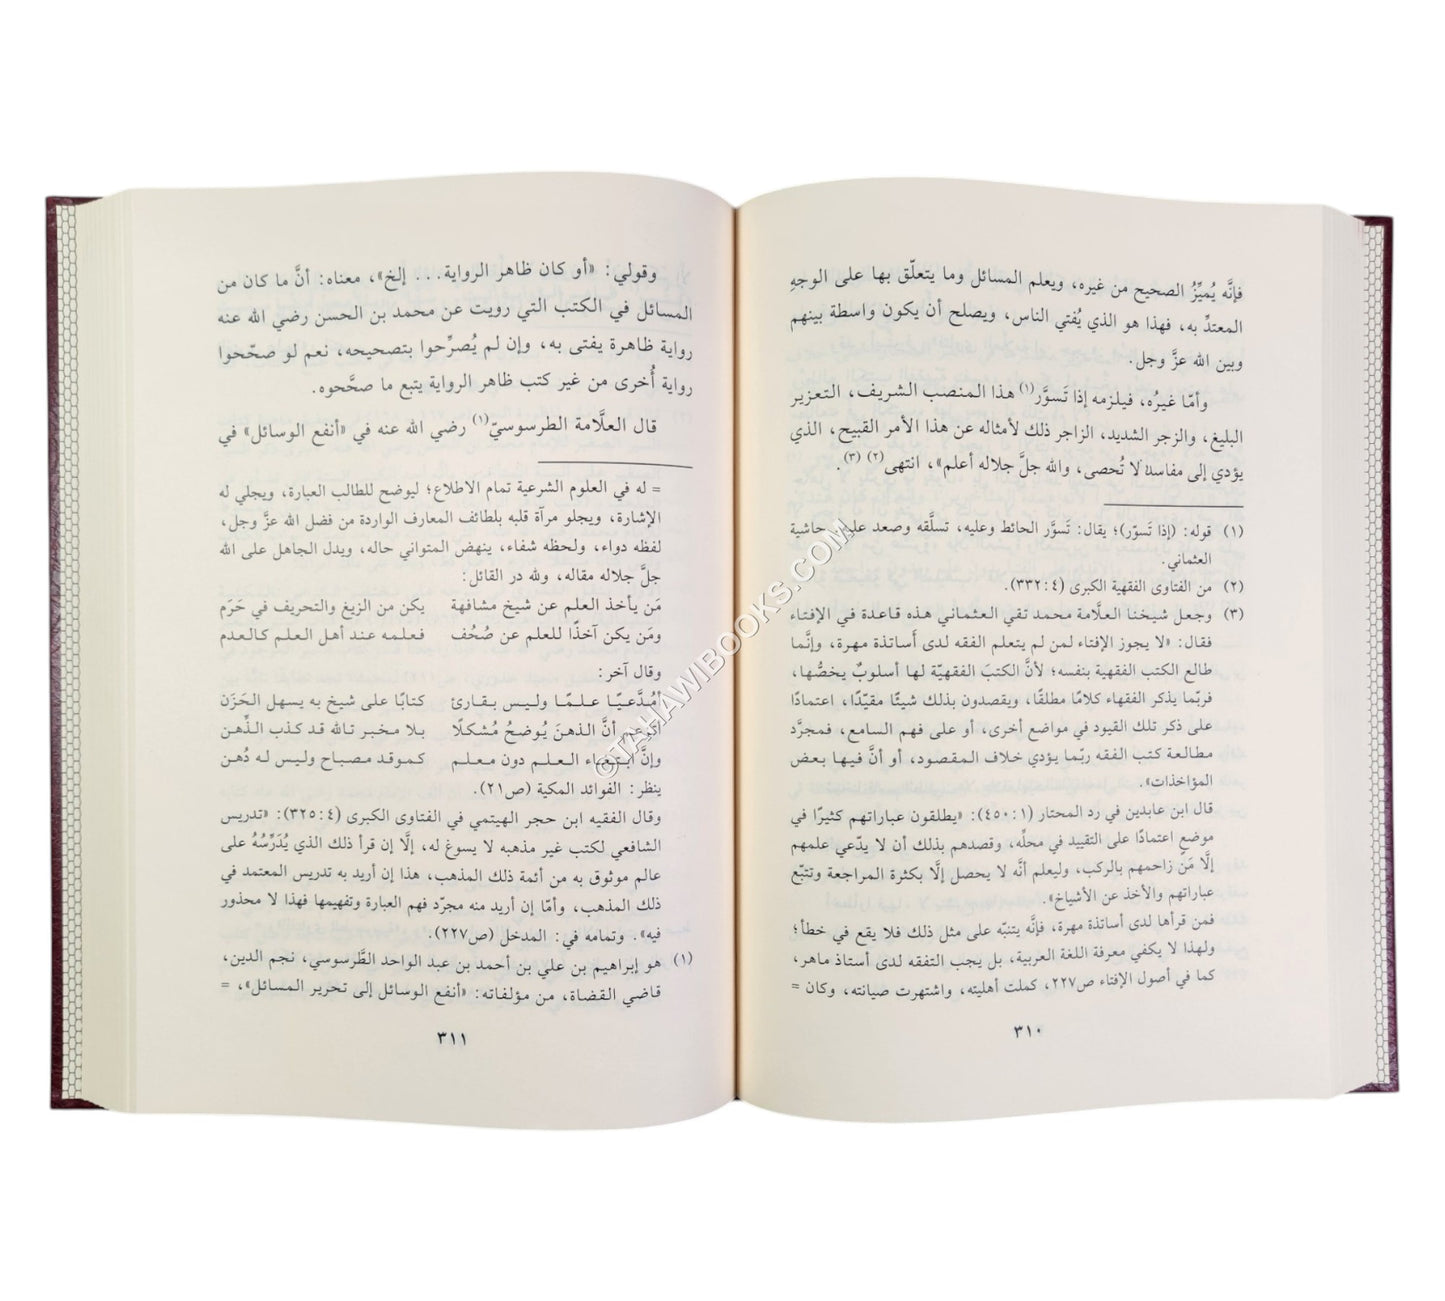 فإنَّه يُميِّزُ الصحيح من غيره، ويعلم المسائل وما يتعلّق بها على الوجهِ
المعتدِّ به، فهذا هو الذي يُفتي الناس، ويصلح أن يكون واسطة بينهم
وبين الله عزَّ وجل.
وأمّا غيرُه، فيلزمه إذا تَسوَّر(١) هذا المنصب الشريف، التعزير
البليغ، والزجر الشديد، الزاجر ذلك لأمثاله عن هذا الأمر القبيح، الذي
يؤدي إلى مفاسد لا تُحصى، والله جلَّ جلاله أعلم»، انتهى(٢) (٣).
(١) قوله: (إذا تَسوّر)؛ يقال: تَسوَّر الحائط وعليه، تسلَّقه وصعد عليه، حاشية
العثماني.
(٢) من الفتاوى الفقهية الكبرى (٤: ٣٣٢).
(٣) وجعل شيخنا العلَّامة محمد تقي العثماني هذه قاعدة في الإفتاء
فقال: «لا يجوز الإفتاء لمن لم يتعلم الفقه لدى أساتذة مهرة، وإنَّما
طالع الكتب الفقهية بنفسه؛ لأنَّ الكتبَ الفقهيّة لها أسلوبٌ يخصُّها،
فربّما يذكر الفقهاء كلامًا مطلقًا، ويقصدون بذلك شيئًا مقيّدًا، اعتمادًا
على ذكر تلك القيود في مواضع أخرى، أو على فهم السامع، فمجرَّد
مطالعة كتب الفقه ربّما يؤدي خلاف المقصود، أو أنَّ فيها بعض
المؤاخذات».
قال ابن عابدين في رد المحتار (١: ٤٥٠): «يطلقون عباراتهم كثيرًا في
موضع اعتمادًا على التقييد في محلِّه، وقصدهم بذلك أن لا يدّعي علمهم
إلَّا مَن زاحمهم بالركب، وليعلم أنَّه لا يحصل إلَّا بكثرة المراجعة وتتبّع
عباراتهم والأخذ عن الأشياخ».
فمن قرأها لدى أساتذة مهرة، فإنَّه يتنبّه على مثل ذلك فلا يقع في خطأ؛
ولهذا لا يكفي معرفة اللغة العربية، بل يجب التفقه لدى أستاذ ماهر،
كما في أصول الإفتاء ص٢٢٧، كملت أهليته، واشتهرت صيانته، وكان =
٣١٠
وقولي: «أو كان ظاهر الرواية... إلخ»، معناه: أنَّ ما كان من
المسائل في الكتب التي رويت عن محمد بن الحسن رضي الله عنه
رواية ظاهرة يفتى به، وإن لم يُصرِّحوا بتصحيحه، نعم لو صحّحوا
رواية أُخرى من غير كتب ظاهر الرواية يتبع ما صحَّحوه.
قال العلَّامة الطرسوسيّ(١) رضي الله عنه في «أنفع الوسائل» في
= له في العلوم الشرعية تمام الاطلاع؛ ليوضح للطالب العبارة، ويجلي له
الإشارة، ويجلو مرآة قلبه بلطائف المعارف الواردة من فضل الله عزَّ وجل،
لفظه دواء، ولحظه شفاء، ينهض المتواني حاله، ويدل الجاهل على الله
جلَّ جلاله مقاله، ولله در القائل:
مَن يأخذ العلم عن شيخ مشافهة يكن من الزيغ والتحريف في حَرَم
ومَن يكن آخذًا للعلم عن صُحُف فعلمه عند أهل العلم كالعدم
وقال آخر:
أمُدَّعيًا علمًا وليس بقارئ كتابًا على شيخ به يسهل الحَزَن
أتزعم أنَّ الذهنَ يُوضحُ مُشكلًا بلا مخبر تالله قد كذب الذِّهن
وإنَّ ابتغاء العلم دون معلم كموقد مصباح وليس له دُهن
ينظر: الفوائد المكية (ص٢١).
وقال الفقيه ابن حجر الهيتمي في الفتاوى الكبرى (٤: ٣٢٥): «تدريس
الشافعي لكتب غير مذهبه لا يسوغ له، إلَّا إن قرأ ذلك الذي يُدَرِّسُهُ على
عالم موثوق به من أئمة ذلك المذهب، هذا إن أريد به تدريس المعتمد في
ذلك المذهب، وأمّا إن أريد منه مجرّد فهم العبارة وتفهيمها فهذا لا محذور
فيه». وتمامه في: المدخل (ص٢٢٧).
(١) هو إبراهيم بن علي بن أحمد بن عبد الواحد الطَّرسوسي، نجم الدين،
قاضي القضاة، من مؤلفاته: «أنفع الوسائل إلى تحرير المسائل»، =
٣١١
©TAHAWIBOOKS.COM